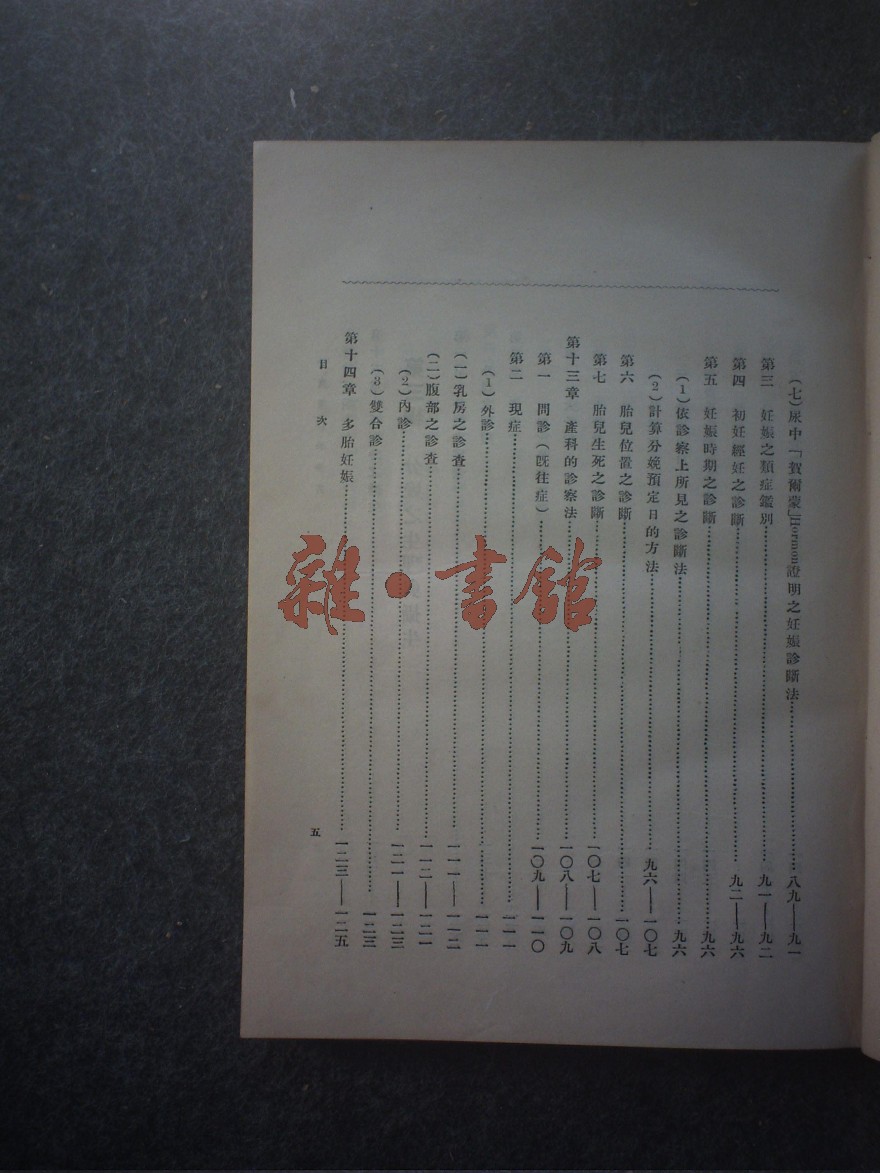 (七)尿中「賀爾蒙」Hormon證明之妊娠診斷法……八九——九一
第三 妊娠之類症鑑別……九一——九二
第四 初妊經妊之診斷……九二——九六
第五 妊娠時期之診斷……九六
(1)依診察上所見之診斷法……九六
(2)計算分娩預定日的方法……九六——一〇七
第六 胎兒位置之診斷……一〇七
第七 胎兒生死之診斷……一〇七——一〇八
第十三章 產科的診察法……一〇八——一〇九
第一 問診(既往症)……一〇九——一一〇
第二 現症……一一一
(1)外診……一一一
(一)乳房之診查……一一一——一一二
(二)腹部之診查……一一二——一二一
(2)內診……一二一——一二三
(3)雙合診……一二三
第十四章 多胎妊娠……一二三——一二五
目次 五
雜·書館